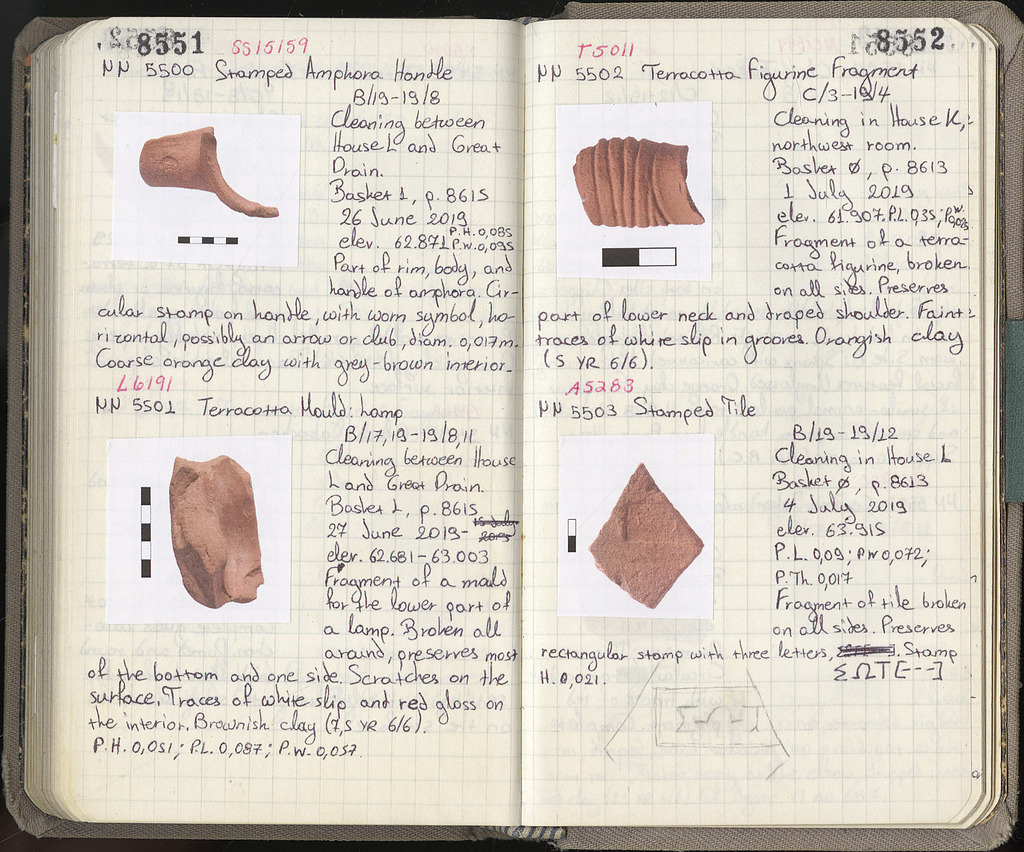 8551 SS15159
NN 5500 Stamped Amphora Handle
B/19-19/8
Cleaning between
House L and Great
Drain.
Basket 1, p. 8615
26 June 2019
elev. 62.871 P.H. 0,085 P.W. 0,095
Part of rim, body, and
handle of amphora. Cir-
cular stamp on handle, with worn symbol, ho-
rizontal, possibly an arrow or club, diam. 0,017 m.
Coarse orange clay with grey-brown interior.
L6191
NN 5501 Terracotta Mould: Lamp
B/17,19-19/8,11
Cleaning between House
L and Great Drain.
Basket 1, p. 8615
27 June 2019- 15 July
2019
elev. 62.681-63.003
Fragment of a mould
for the lower part of
a lamp. Broken all
around, preserves most
of the bottom and one side. Scratches on the
surface. Traces of white slip and red gloss on
the interior. Brownish clay (7,5 YR 6/6).
P.H. 0,051; P.L. 0,087; P.W. 0,057
T5011 8552
NN 5502 Terracotta Figurine Fragment
C/3-19/4
Cleaning in House K,
northwest room.
Basket Ø, p. 8613
1 July 2019
elev. 61.907, P.L. 0,35; P.W.
Fragment of a terra-
cotta figurine, broken
on all sides. Preserves
part of lower neck and draped shoulder. Faint
traces of white slip in grooves. Orangish clay
(5 YR 6/6).
A5283
NN 5503 Stamped Tile
B/19-19/12
Cleaning in House L
Basket Ø, p. 8613
4 July 2019
elev. 63.915
P.L. 0,09; P.W 0,072;
P.Th. 0,017
Fragment of tile broken
on all sides. Preserves
rectangular stamp with three letters, . Stamp
H. 0,021. ΣΩΤ[---]
ΣΩΤ